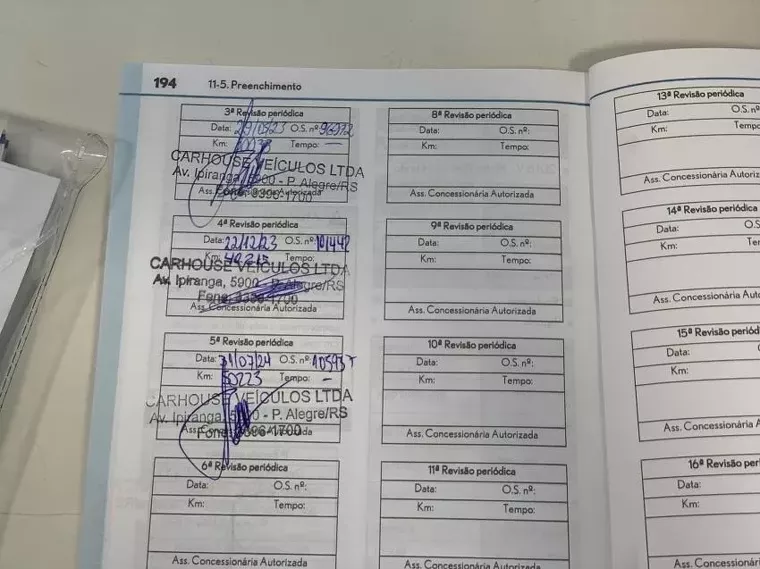 194 11-5. Preenchimento
3ª Revisão periódica
Data: O.S. nº: 96972
Km: Tempo: —
CARHOUSE VEÍCULOS LTDA
Av. Ipiranga, 5900 - P. Alegre/RS
Fone: 3396-1700
4ª Revisão periódica
Data: 22/12/23 O.S. nº: 101442
Km: Tempo:
CARHOUSE VEÍCULOS LTDA
Av. Ipiranga, 5900 - P. Alegre/RS
Fone: 3396-1700
Ass. Concessionária Autorizada
5ª Revisão periódica
Data: 31/07/24 O.S. nº:
Km: 50223 Tempo: —
CARHOUSE VEÍCULOS LTDA
Av. Ipiranga, 5900 - P. Alegre/RS
Fone: 3396-1700
6ª Revisão periódica
Data: O.S. nº:
Km: Tempo:
Ass. Concessionária Autorizada
8ª Revisão periódica
Data: O.S. nº:
Km: Tempo:
Ass. Concessionária Autorizada
9ª Revisão periódica
Data: O.S. nº:
Km: Tempo:
Ass. Concessionária Autorizada
10ª Revisão periódica
Data: O.S. nº:
Km: Tempo:
Ass. Concessionária Autorizada
11ª Revisão periódica
Data: O.S. nº:
Km: Tempo:
Ass. Concessionária Autorizada
13ª Revisão periódica
Data: O.S. nº:
Km: Tempo
Ass. Concessionária Autoriz
14ª Revisão periódica
Data: O.S
Km: Te
Ass. Concessionária Autori
15ª Revisão periód
Data: O.
Km:
Ass. Concessionária A
16ª Revisão per
Data:
Km:
Ass. Concessionári